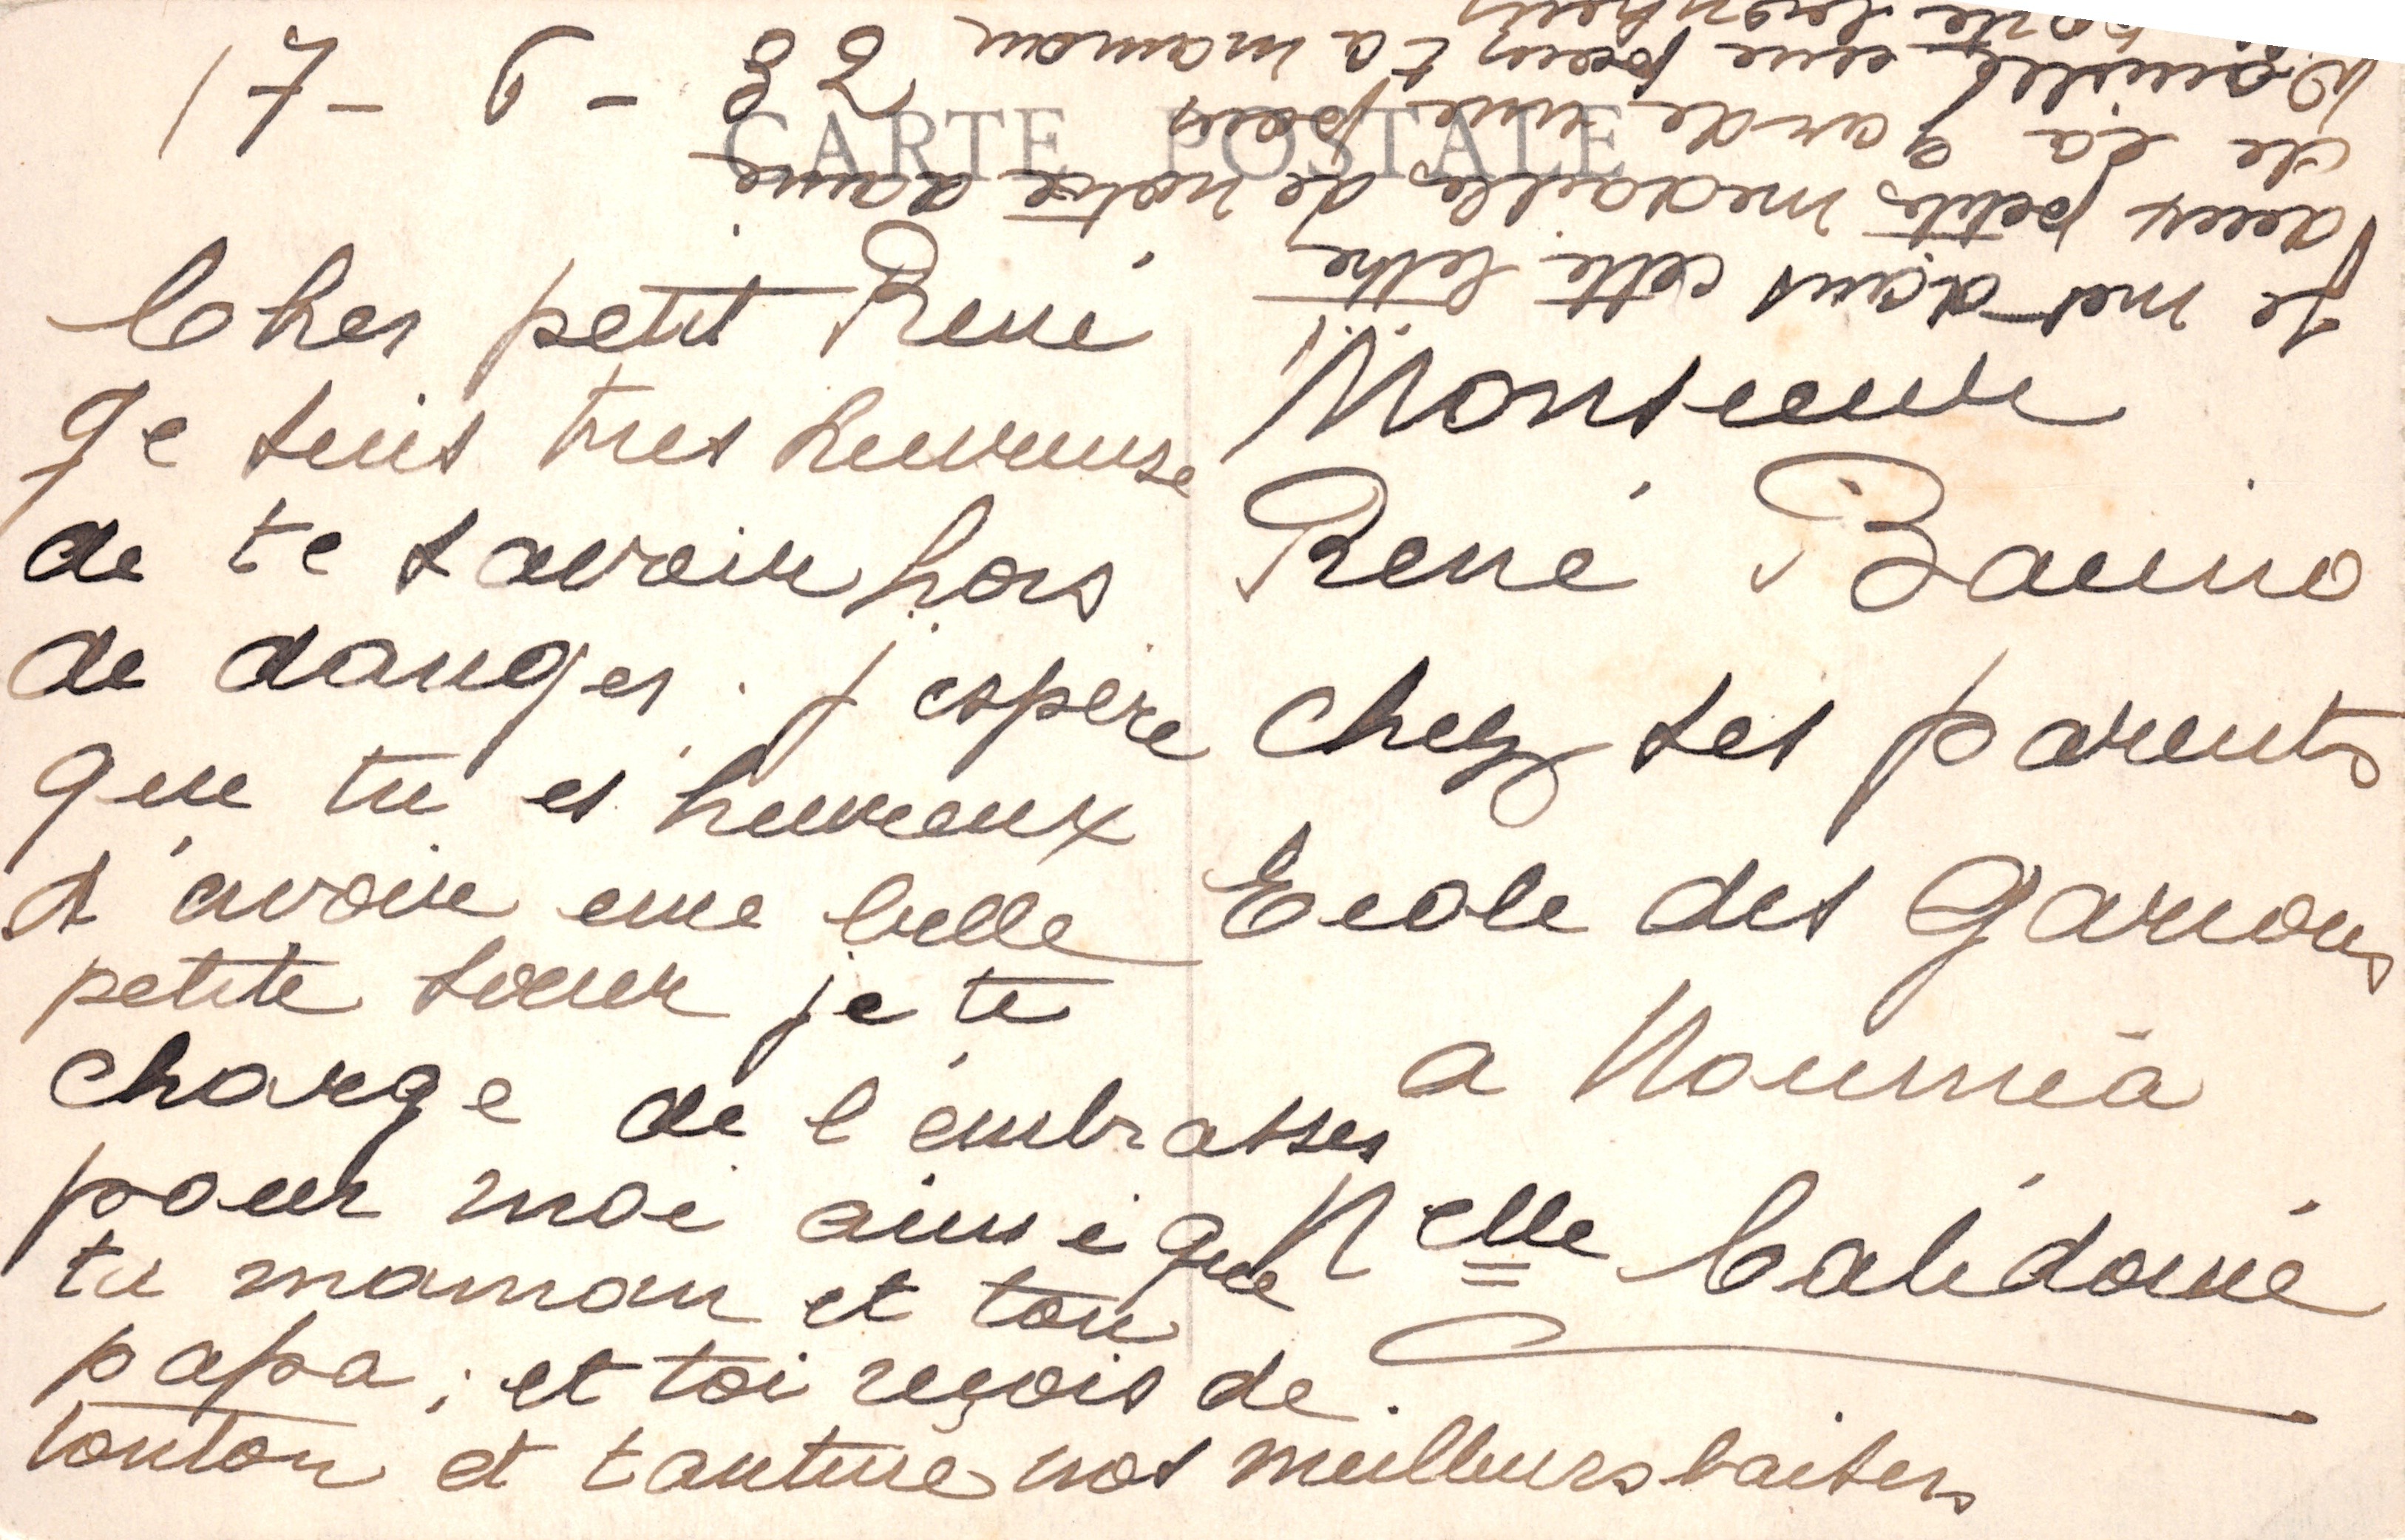 17-9-38
CARTE POSTALE
Cher petit René
Je suis tres heureuse
de te savoir hors
de danger. j espère
que tu es heureux
d'avoir une belle
petite soeur je te
charge de l'embrasser
pour moi ainsi que
ta maman et ton
papa; et toi reçois de
tonton et tantine nos meilleurs baisers
Monsieur
René Bauino
chez ses parents
Ecole des Garcons
a Nouméa
Nelle Calédonie
Je met dans cette lettre
deux petites medailles de notre dame
de la garde une pour
une pour ta maman
porte bonheur